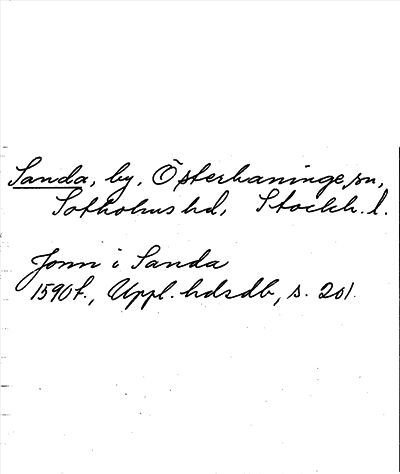 Sanda, by, Österhaninge sn,
Sotholms hd, Stockh. l.
Jonn i Sanda
1590 f., Uppl. hdsdb, s. 201.